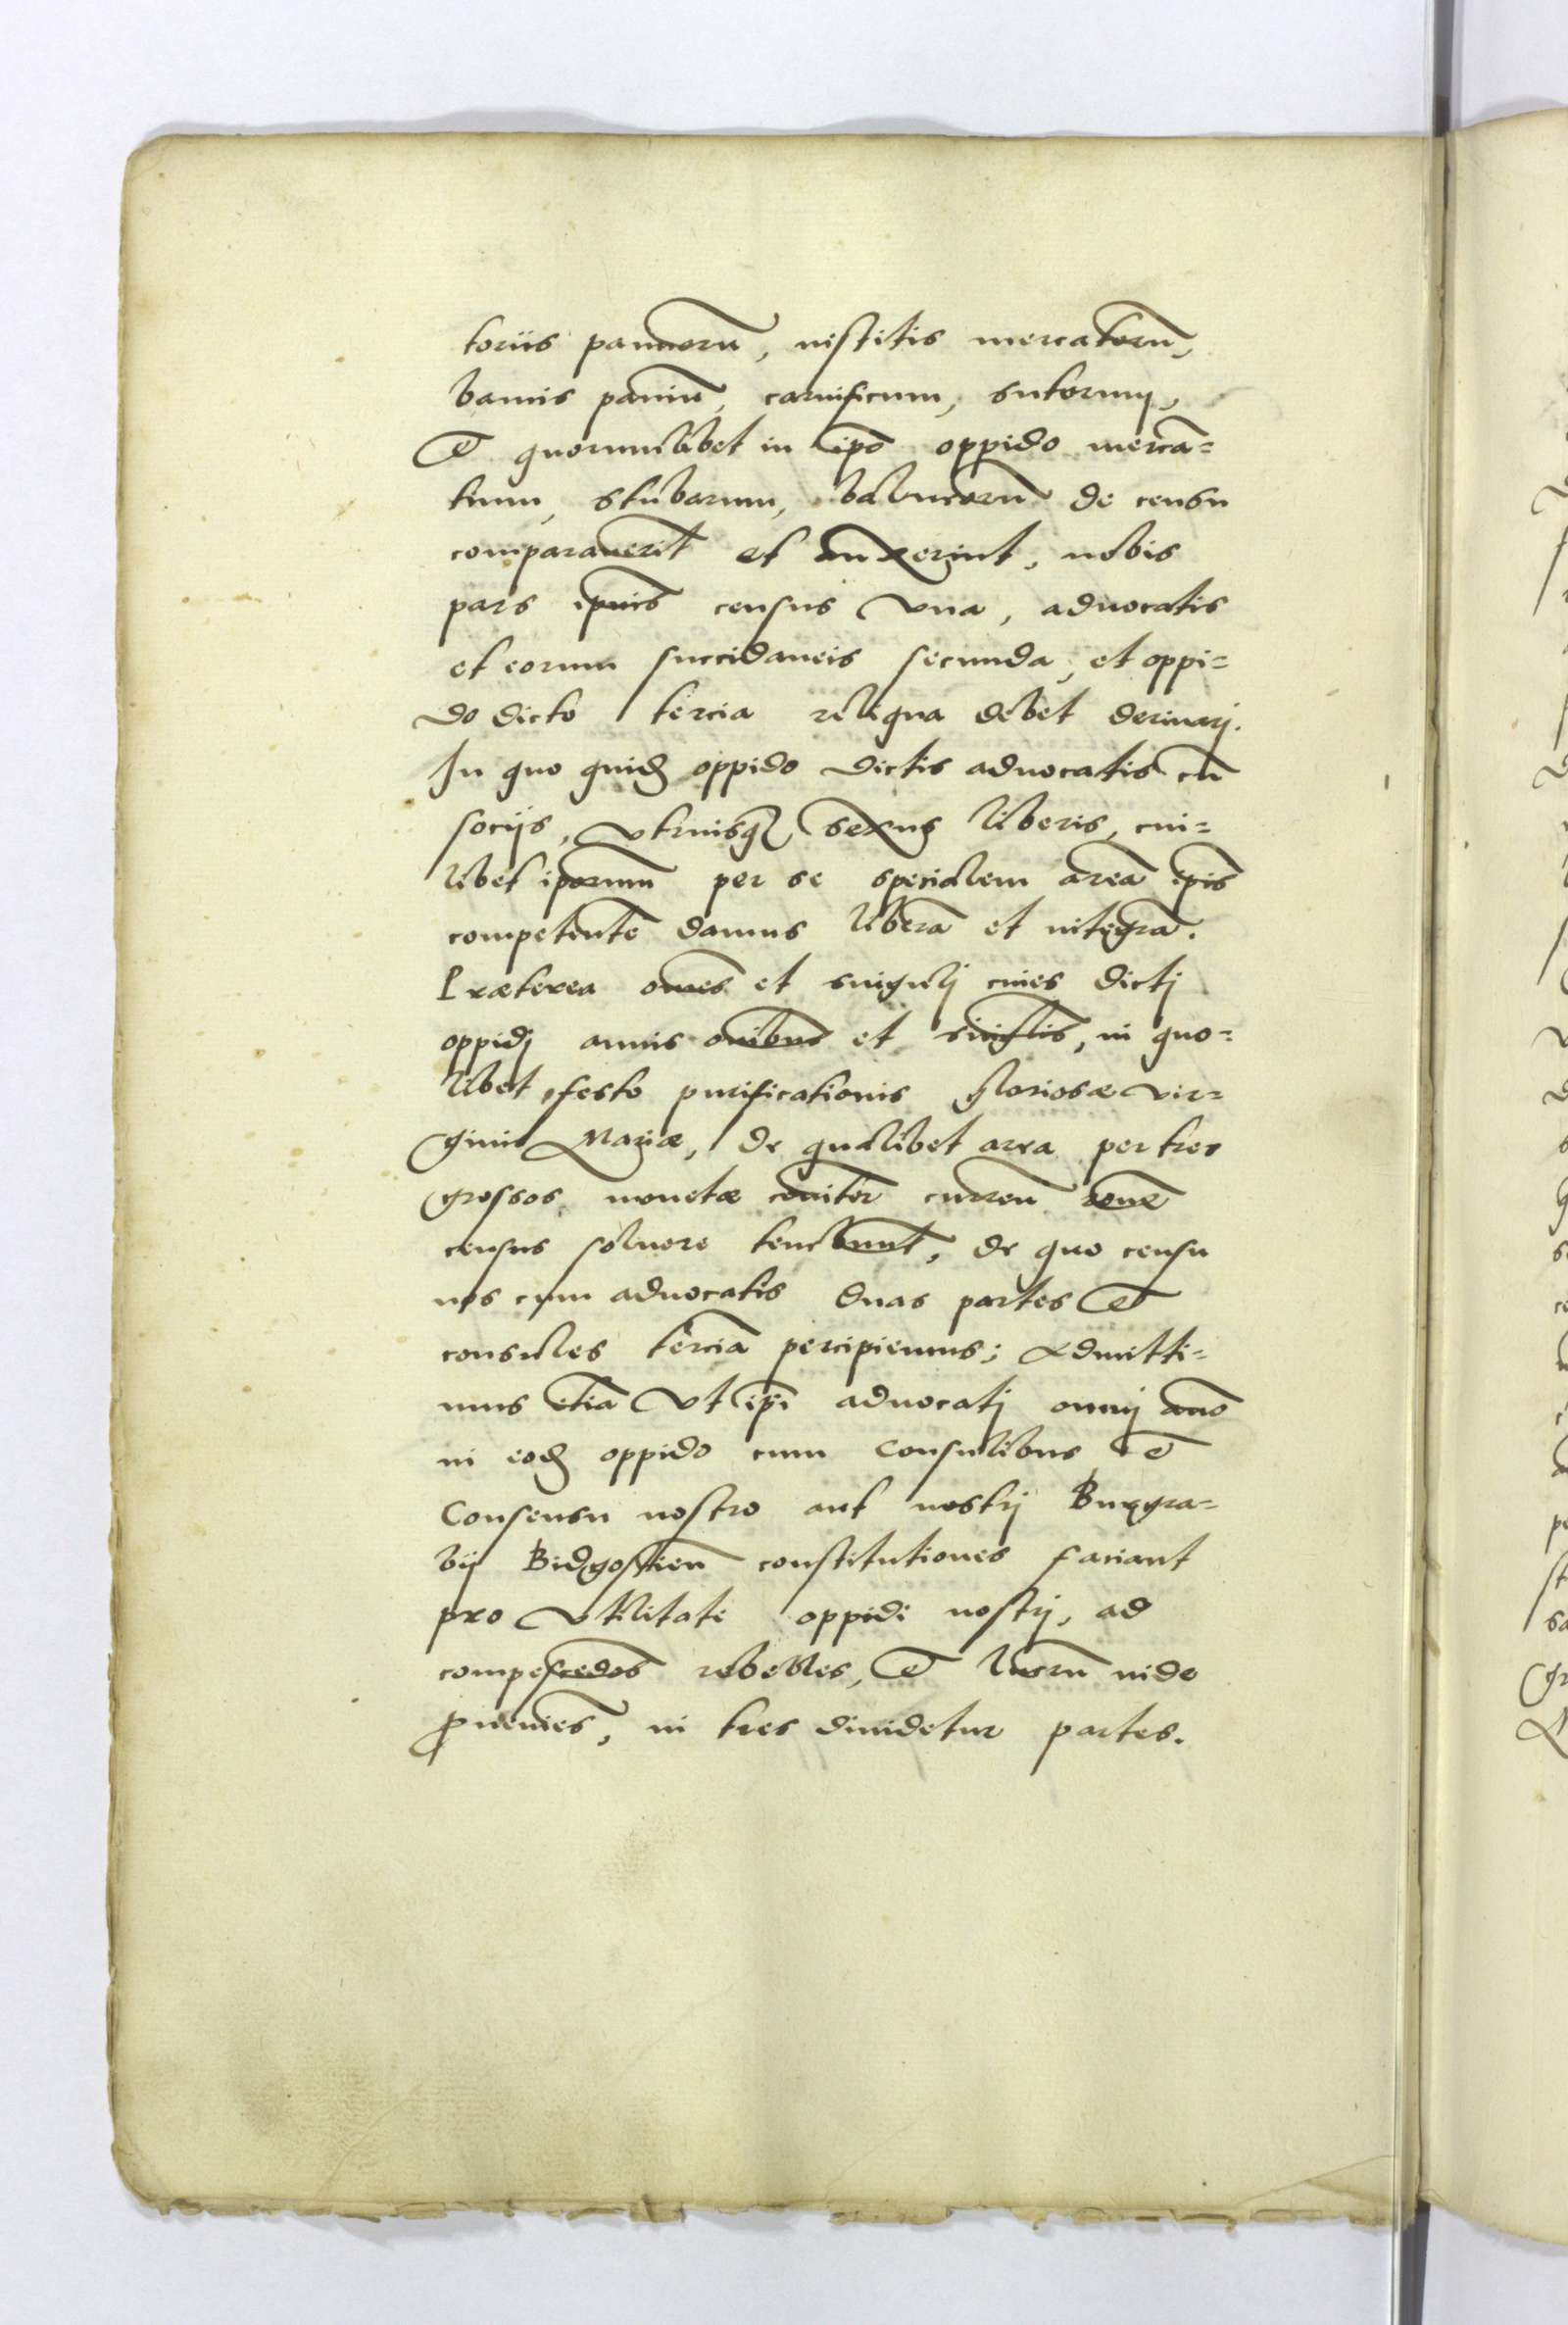 toriis pannorū, institis mercatorū,
bancis paniū, carnificum, sutorum,
et quorumlibet in ipō oppido mercā=
tium, stubarum, balneorū de censu
comparaverīt et auxerint, nobis
pars ipīus census vna, advocatis
et eorum succidaneis secunda, et oppi=
do dicto tercia reliqua debet derivarj.
In quo quidē oppido dictis advocatis cū
socijs, vtriusq sexus liberis, cui=
libet ipōrum per se specialem areā ipīs
competentē damus liberā et integrā.
Præterea omēs et singulj cives dictj
oppidj annis oībus et singlis, in quo=
libet festo purificationis gloriosæ vir=
ginis Mariæ, de qualibet area per tres
grossos monetæ cōiter curreñ rōne
census solvere tenebunt, de quo censu
nos cum advocatis duas partes et
consules terciā percipiemus; Admitti=
mus etiā vt ipī advocatj omnj año
in eodē oppido cum Consulibus, et
Consensu nostro aut nostrj Burgra=
bij Bidgostieñ constitutiones faciant
pro vtilitate oppidi nostrj, ad
compescēdos rebelles, et lucrū inde
proveniēs, in tres dividetur partes.